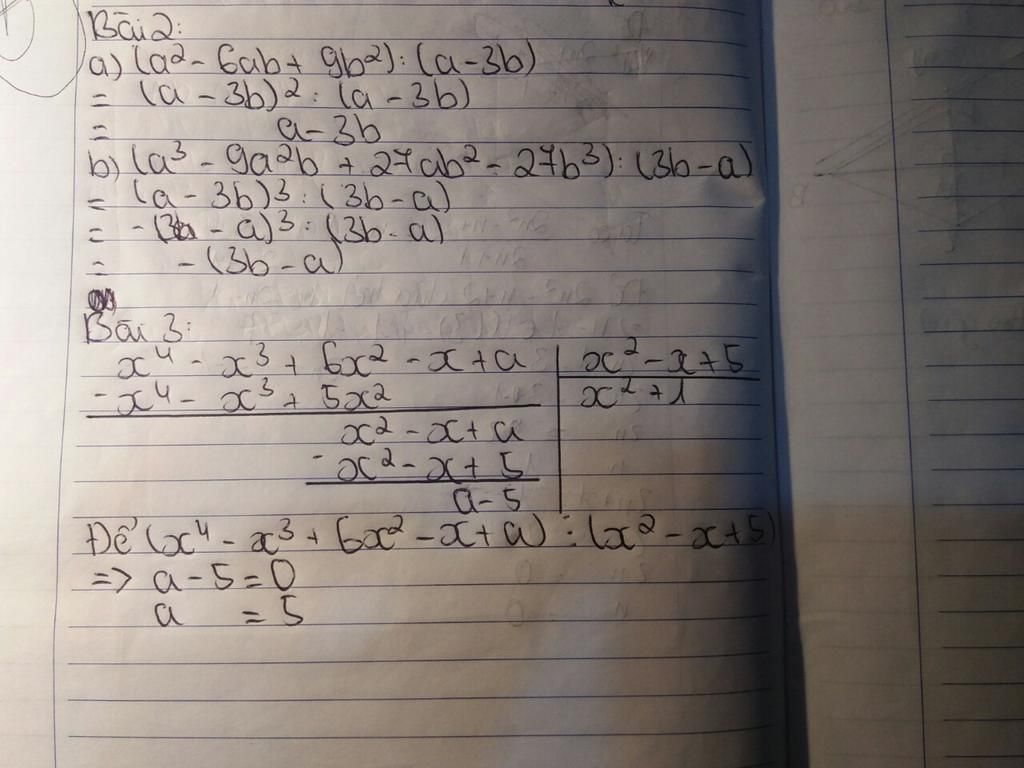 Bài 2:
a) (a² - 6ab + 9b²) : (a - 3b)
= (a - 3b)² : (a - 3b)
= a - 3b
b) (a³ - 9a²b + 27ab² - 27b³) : (3b - a)
= (a - 3b)³ : (3b - a)
= -(3b - a)³ : (3b - a)
= -(3b - a)
Bài 3:
x⁴ - x³ + 6x² - x + a | x² - x + 5
- x⁴ - x³ + 5x² | x² + 1
x² - x + a
- x² - x + 5
a - 5
Để (x⁴ - x³ + 6x² - x + a) ⋮ (x² - x + 5)
=> a - 5 = 0
a = 5